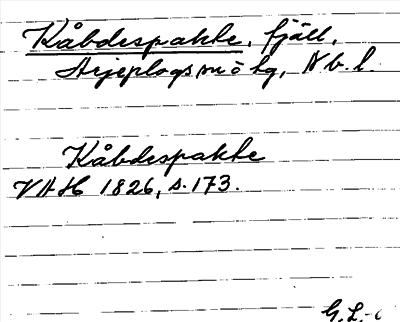 Kåbdespakke, fjäll,
Arjeplogs sn ö lg, Nb. l.
Kåbdespakke
VAH 1826, s. 173.
G. L.